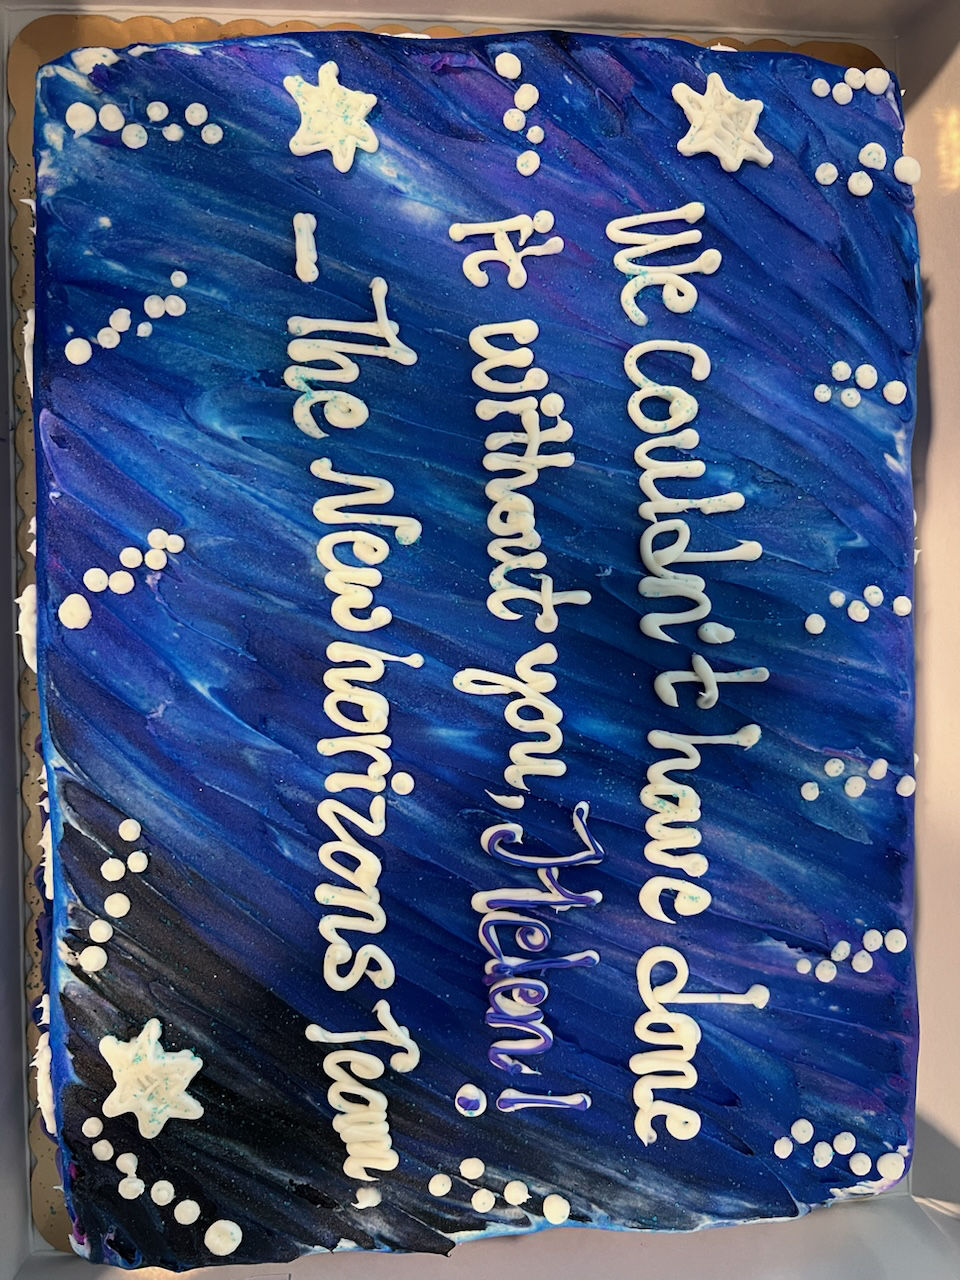 We couldn't have done
it without you, Helen!
- The New horizons Team.